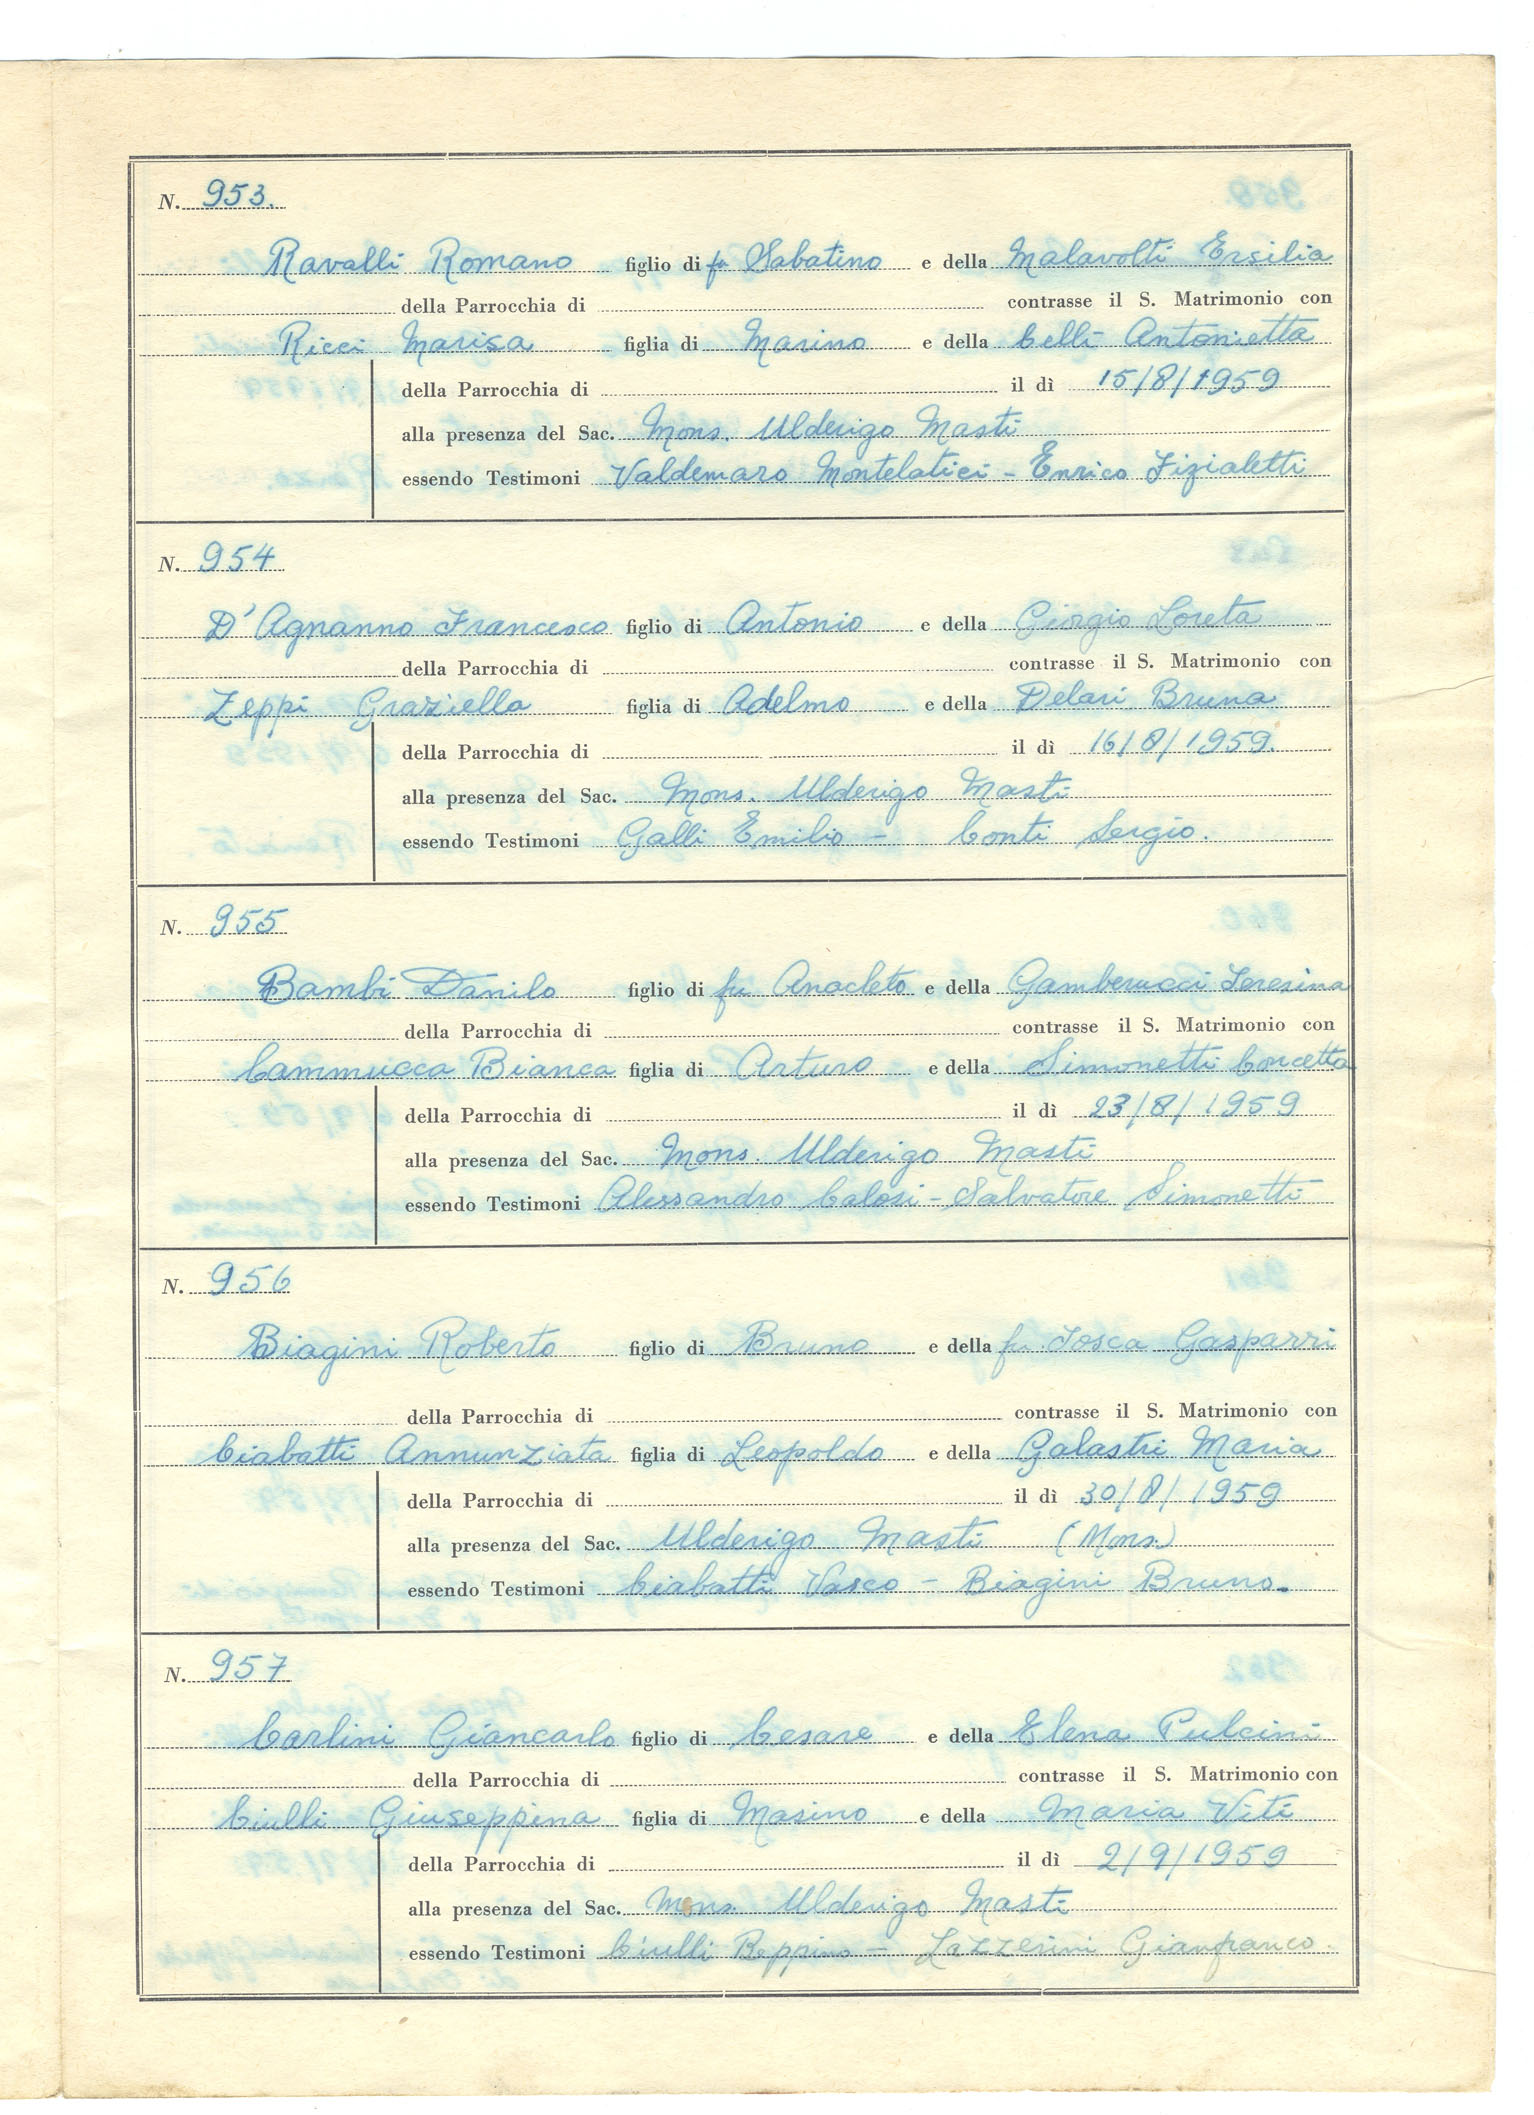 N. 953.
Ravalli Romano figlio di fu Sabatino e della Malavolti Ersilia
della Parrocchia di contrasse il S. Matrimonio con
Ricci Marisa figlia di Marino e della Celli Antonietta
della Parrocchia di il dì 15/8/1959
alla presenza del Sac. Mons. Ulderigo Masti
essendo Testimoni Valdemaro Montelatici - Enrico Fizialetti
N. 954
D'Agnanno Francesco figlio di Antonio e della Giorgio Loreta
della Parrocchia di contrasse il S. Matrimonio con
Zeppi Graziella figlia di Adelmo e della Delari Bruna
della Parrocchia di il dì 16/8/1959.
alla presenza del Sac. Mons. Ulderigo Masti
essendo Testimoni Galli Emilio - Conti Sergio.
N. 955
Bambi Danilo figlio di fu Anacleto e della Gamberucci Teresina
della Parrocchia di contrasse il S. Matrimonio con
Cammucca Bianca figlia di Arturo e della Simonetti Concetta
della Parrocchia di il dì 23/8/1959
alla presenza del Sac. Mons. Ulderigo Masti
essendo Testimoni Alessandro Calosi - Salvatore Simonetti
N. 956
Biagini Roberto figlio di Bruno e della fu Tosca Gasparri
della Parrocchia di contrasse il S. Matrimonio con
Ciabatti Annunziata figlia di Leopoldo e della Galastri Maria
della Parrocchia di il dì 30/8/1959
alla presenza del Sac. Ulderigo Masti (Mons.)
essendo Testimoni Ciabatti Vasco - Biagini Bruno.
N. 957
Carlini Giancarlo figlio di Cesare e della Elena Pulcini
della Parrocchia di contrasse il S. Matrimonio con
Ciulli Giuseppina figlia di Masino e della Maria Viti
della Parrocchia di il dì 2/9/1959
alla presenza del Sac. Mons. Ulderigo Masti
essendo Testimoni Ciulli Beppino - Lazzerini Gianfranco.